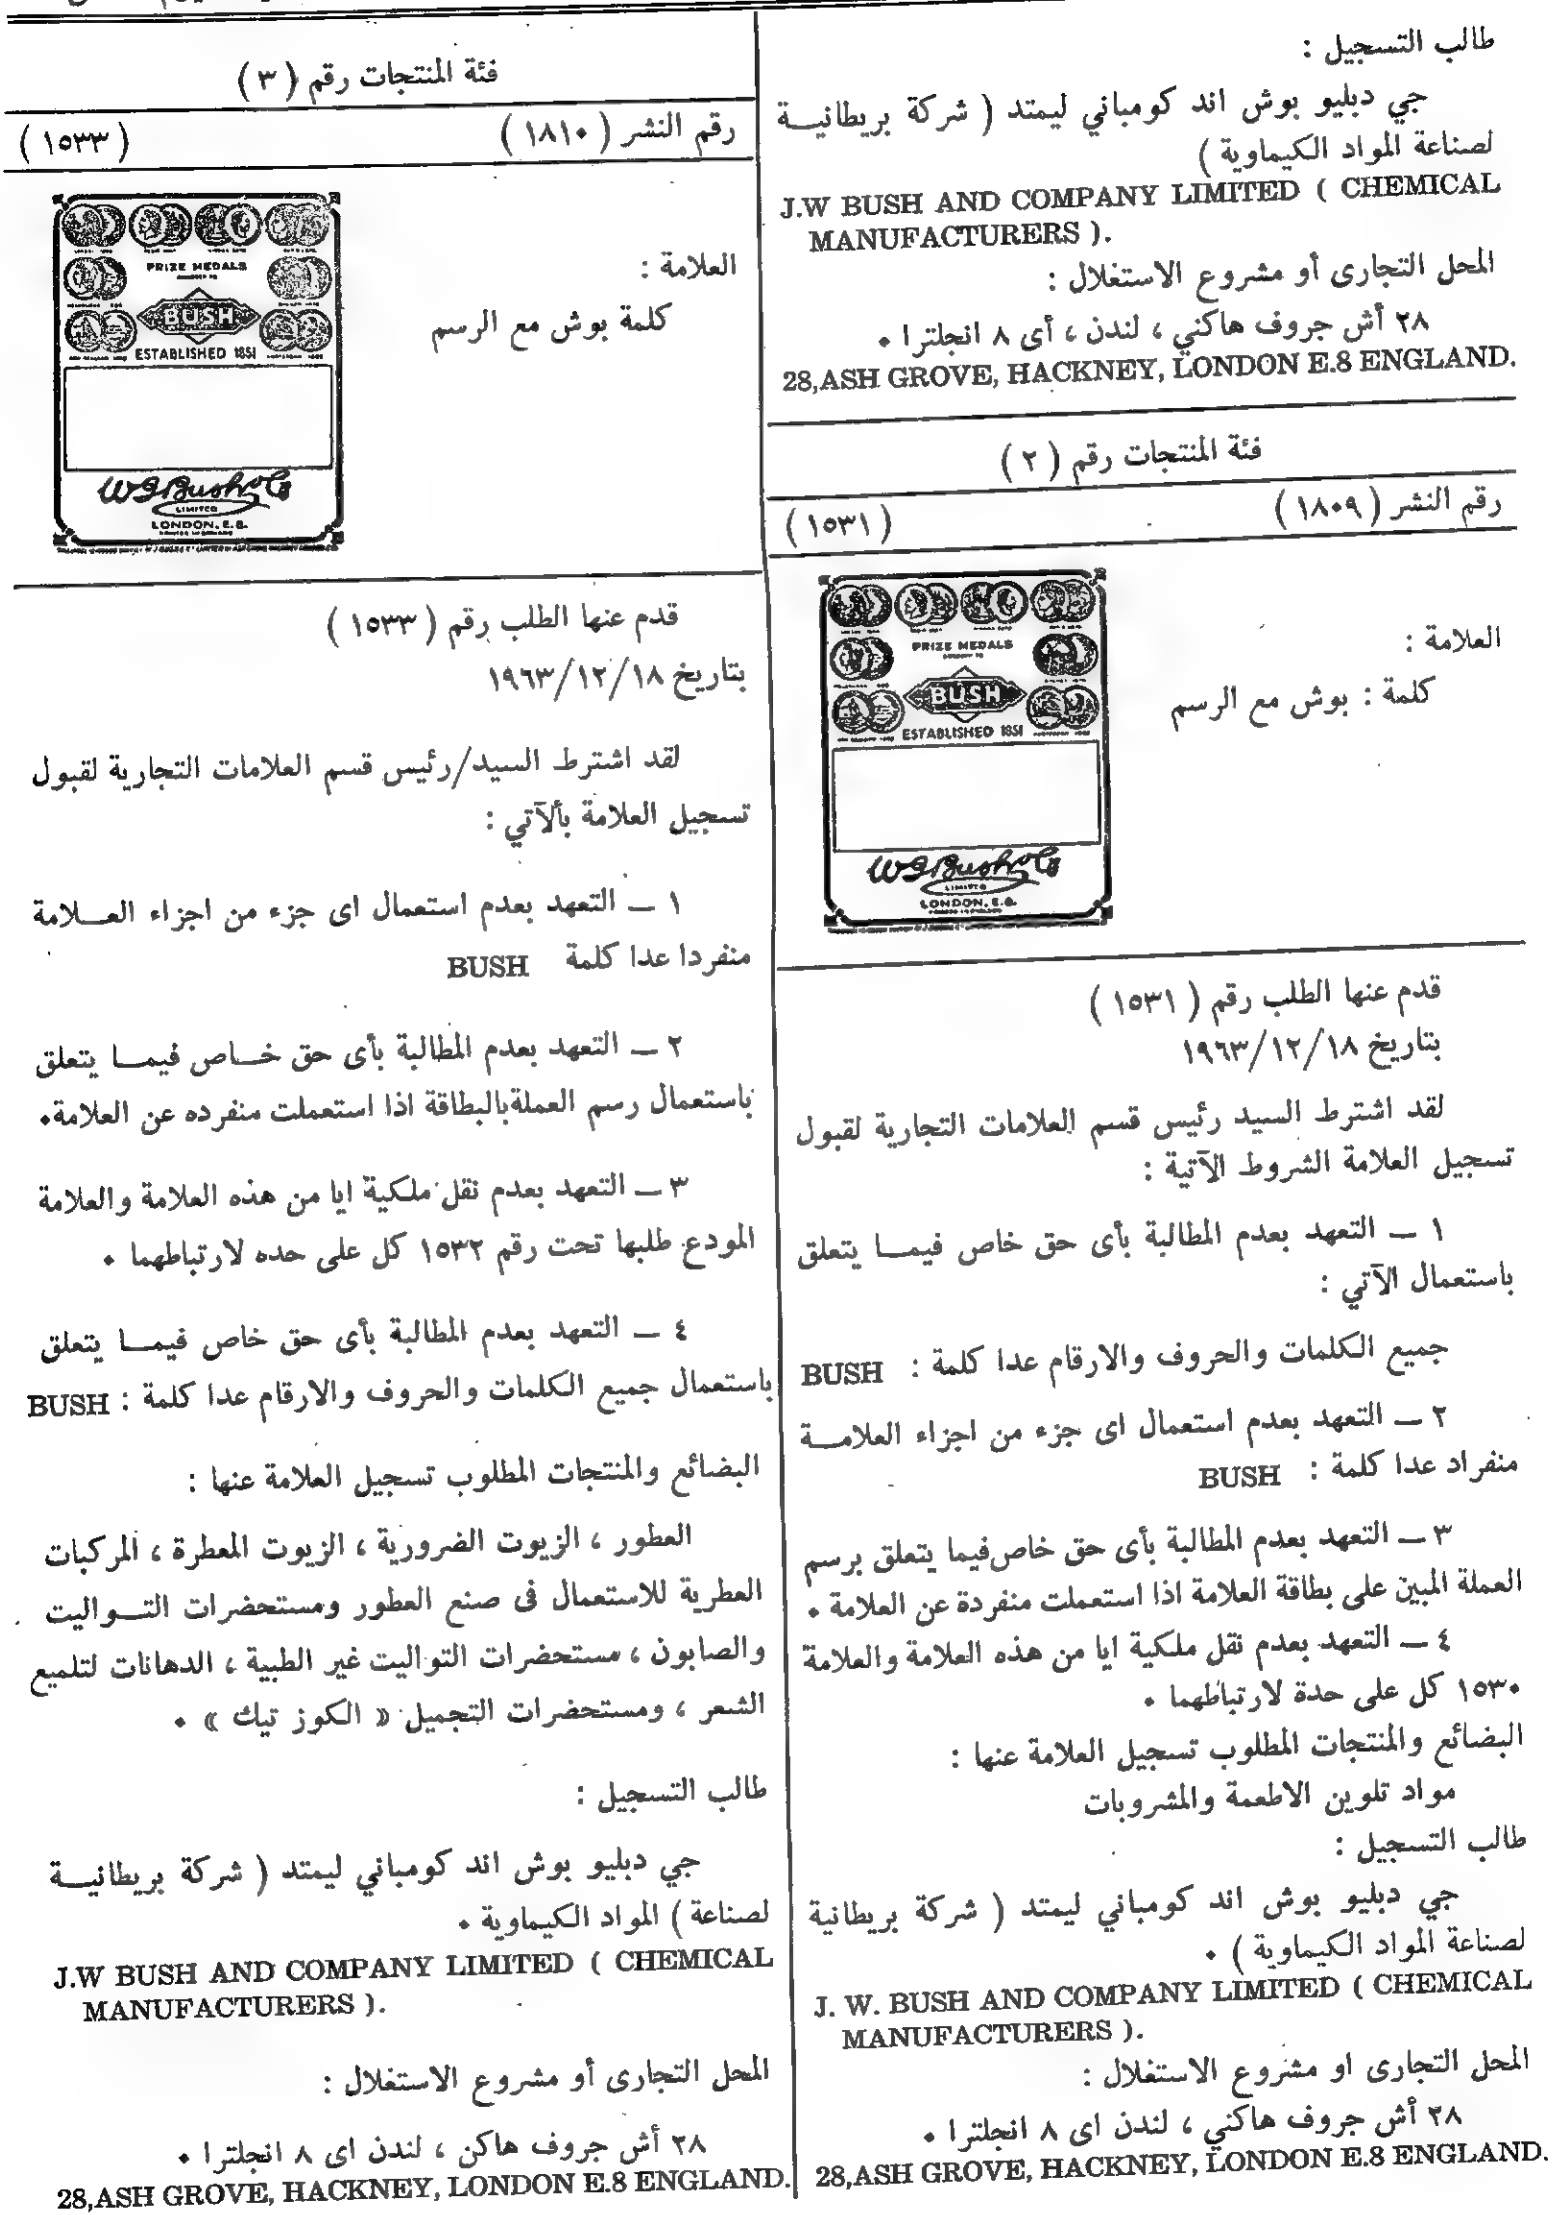 طالب التسجيل :
جي دبليو بوش اند كومباني ليمتد ( شركة بريطانيــة
لصناعة المواد الكيماوية )
J.W BUSH AND COMPANY LIMITED ( CHEMICAL
MANUFACTURERS ).
المحل التجارى أو مشروع الاستغلال :
٢٨ أش جروف هاكني ، لندن ، أى ٨ انجلترا ٠
28,ASH GROVE, HACKNEY, LONDON E.8 ENGLAND.
فئة المنتجات رقم ( ٢ )
رقم النشر ( ١٨٠٩ ) ( ١٥٣١ )
PRIZE MEDALS
BUSH
ESTABLISHED 1851
W J Bush & Co
LIMITED
LONDON, E.8.
العلامة :
كلمة : بوش مع الرسم
قدم عنها الطلب رقم ( ١٥٣١ )
بتاريخ ١٩٦٣/١٢/١٨
لقد اشترط السيد رئيس قسم العلامات التجارية لقبول
تسجيل العلامة الشروط الآتية :
١ ــ التعهد بعدم المطالبة بأى حق خاص فيمــا يتعلق
باستعمال الآتي :
جميع الكلمات والحروف والارقام عدا كلمة : BUSH
٢ ــ التعهد بعدم استعمال اى جزء من اجزاء العلامــة
منفراد عدا كلمة : BUSH
٣ ــ التعهد بعدم المطالبة بأى حق خاص فيما يتعلق برسم
العملة المبين على بطاقة العلامة اذا استعملت منفردة عن العلامة ٠
٤ ــ التعهد بعدم نقل ملكية ايا من هذه العلامة والعلامة
١٥٣٠ كل على حدة لارتباطهما ٠
البضائع والمنتجات المطلوب تسجيل العلامة عنها :
مواد تلوين الاطعمة والمشروبات
طالب التسجيل :
جي دبليو بوش اند كومباني ليمتد ( شركة بريطانية
لصناعة المواد الكيماوية ) ٠
J. W. BUSH AND COMPANY LIMITED ( CHEMICAL
MANUFACTURERS ).
المحل التجارى او مشروع الاستغلال :
٢٨ أش جروف هاكني ، لندن اى ٨ انجلترا ٠
28,ASH GROVE, HACKNEY, LONDON E.8 ENGLAND.
فئة المنتجات رقم ( ٣ )
رقم النشر ( ١٨١٠ ) ( ١٥٣٣ )
PRIZE MEDALS
BUSH
ESTABLISHED 1851
W J Bush & Co
LIMITED
LONDON, E.8.
العلامة :
كلمة بوش مع الرسم
قدم عنها الطلب رقم ( ١٥٣٣ )
بتاريخ ١٩٦٣/١٢/١٨
لقد اشترط السيد/رئيس قسم العلامات التجارية لقبول
تسجيل العلامة بألآتي :
١ ــ التعهد بعدم استعمال اى جزء من اجزاء العــلامة
منفردا عدا كلمة BUSH
٢ ــ التعهد بعدم المطالبة بأى حق خــاص فيمــا يتعلق
باستعمال رسم العملة بالبطاقة اذا استعملت منفرده عن العلامة٠
٣ ــ التعهد بعدم نقل ملكية ايا من هذه العلامة والعلامة
المودع طلبها تحت رقم ١٥٣٢ كل على حده لارتباطهما ٠
٤ ــ التعهد بعدم المطالبة بأى حق خاص فيمــا يتعلق
باستعمال جميع الكلمات والحروف والارقام عدا كلمة : BUSH
البضائع والمنتجات المطلوب تسجيل العلامة عنها :
العطور ، الزيوت الضرورية ، الزيوت المعطرة ، المركبات
العطرية للاستعمال فى صنع العطور ومستحضرات التــواليت
والصابون ، مستحضرات التواليت غير الطبية ، الدهانات لتلميع
الشعر ، ومستحضرات التجميل « الكوز تيك » ٠
طالب التسجيل :
جي دبليو بوش اند كومباني ليمتد ( شركة بريطانيــة
لصناعة ) المواد الكيماوية ٠
J.W BUSH AND COMPANY LIMITED ( CHEMICAL
MANUFACTURERS ).
المحل التجارى أو مشروع الاستغلال :
٢٨ أش جروف هاكن ، لندن اى ٨ انجلترا ٠
28,ASH GROVE, HACKNEY, LONDON E.8 ENGLAND.